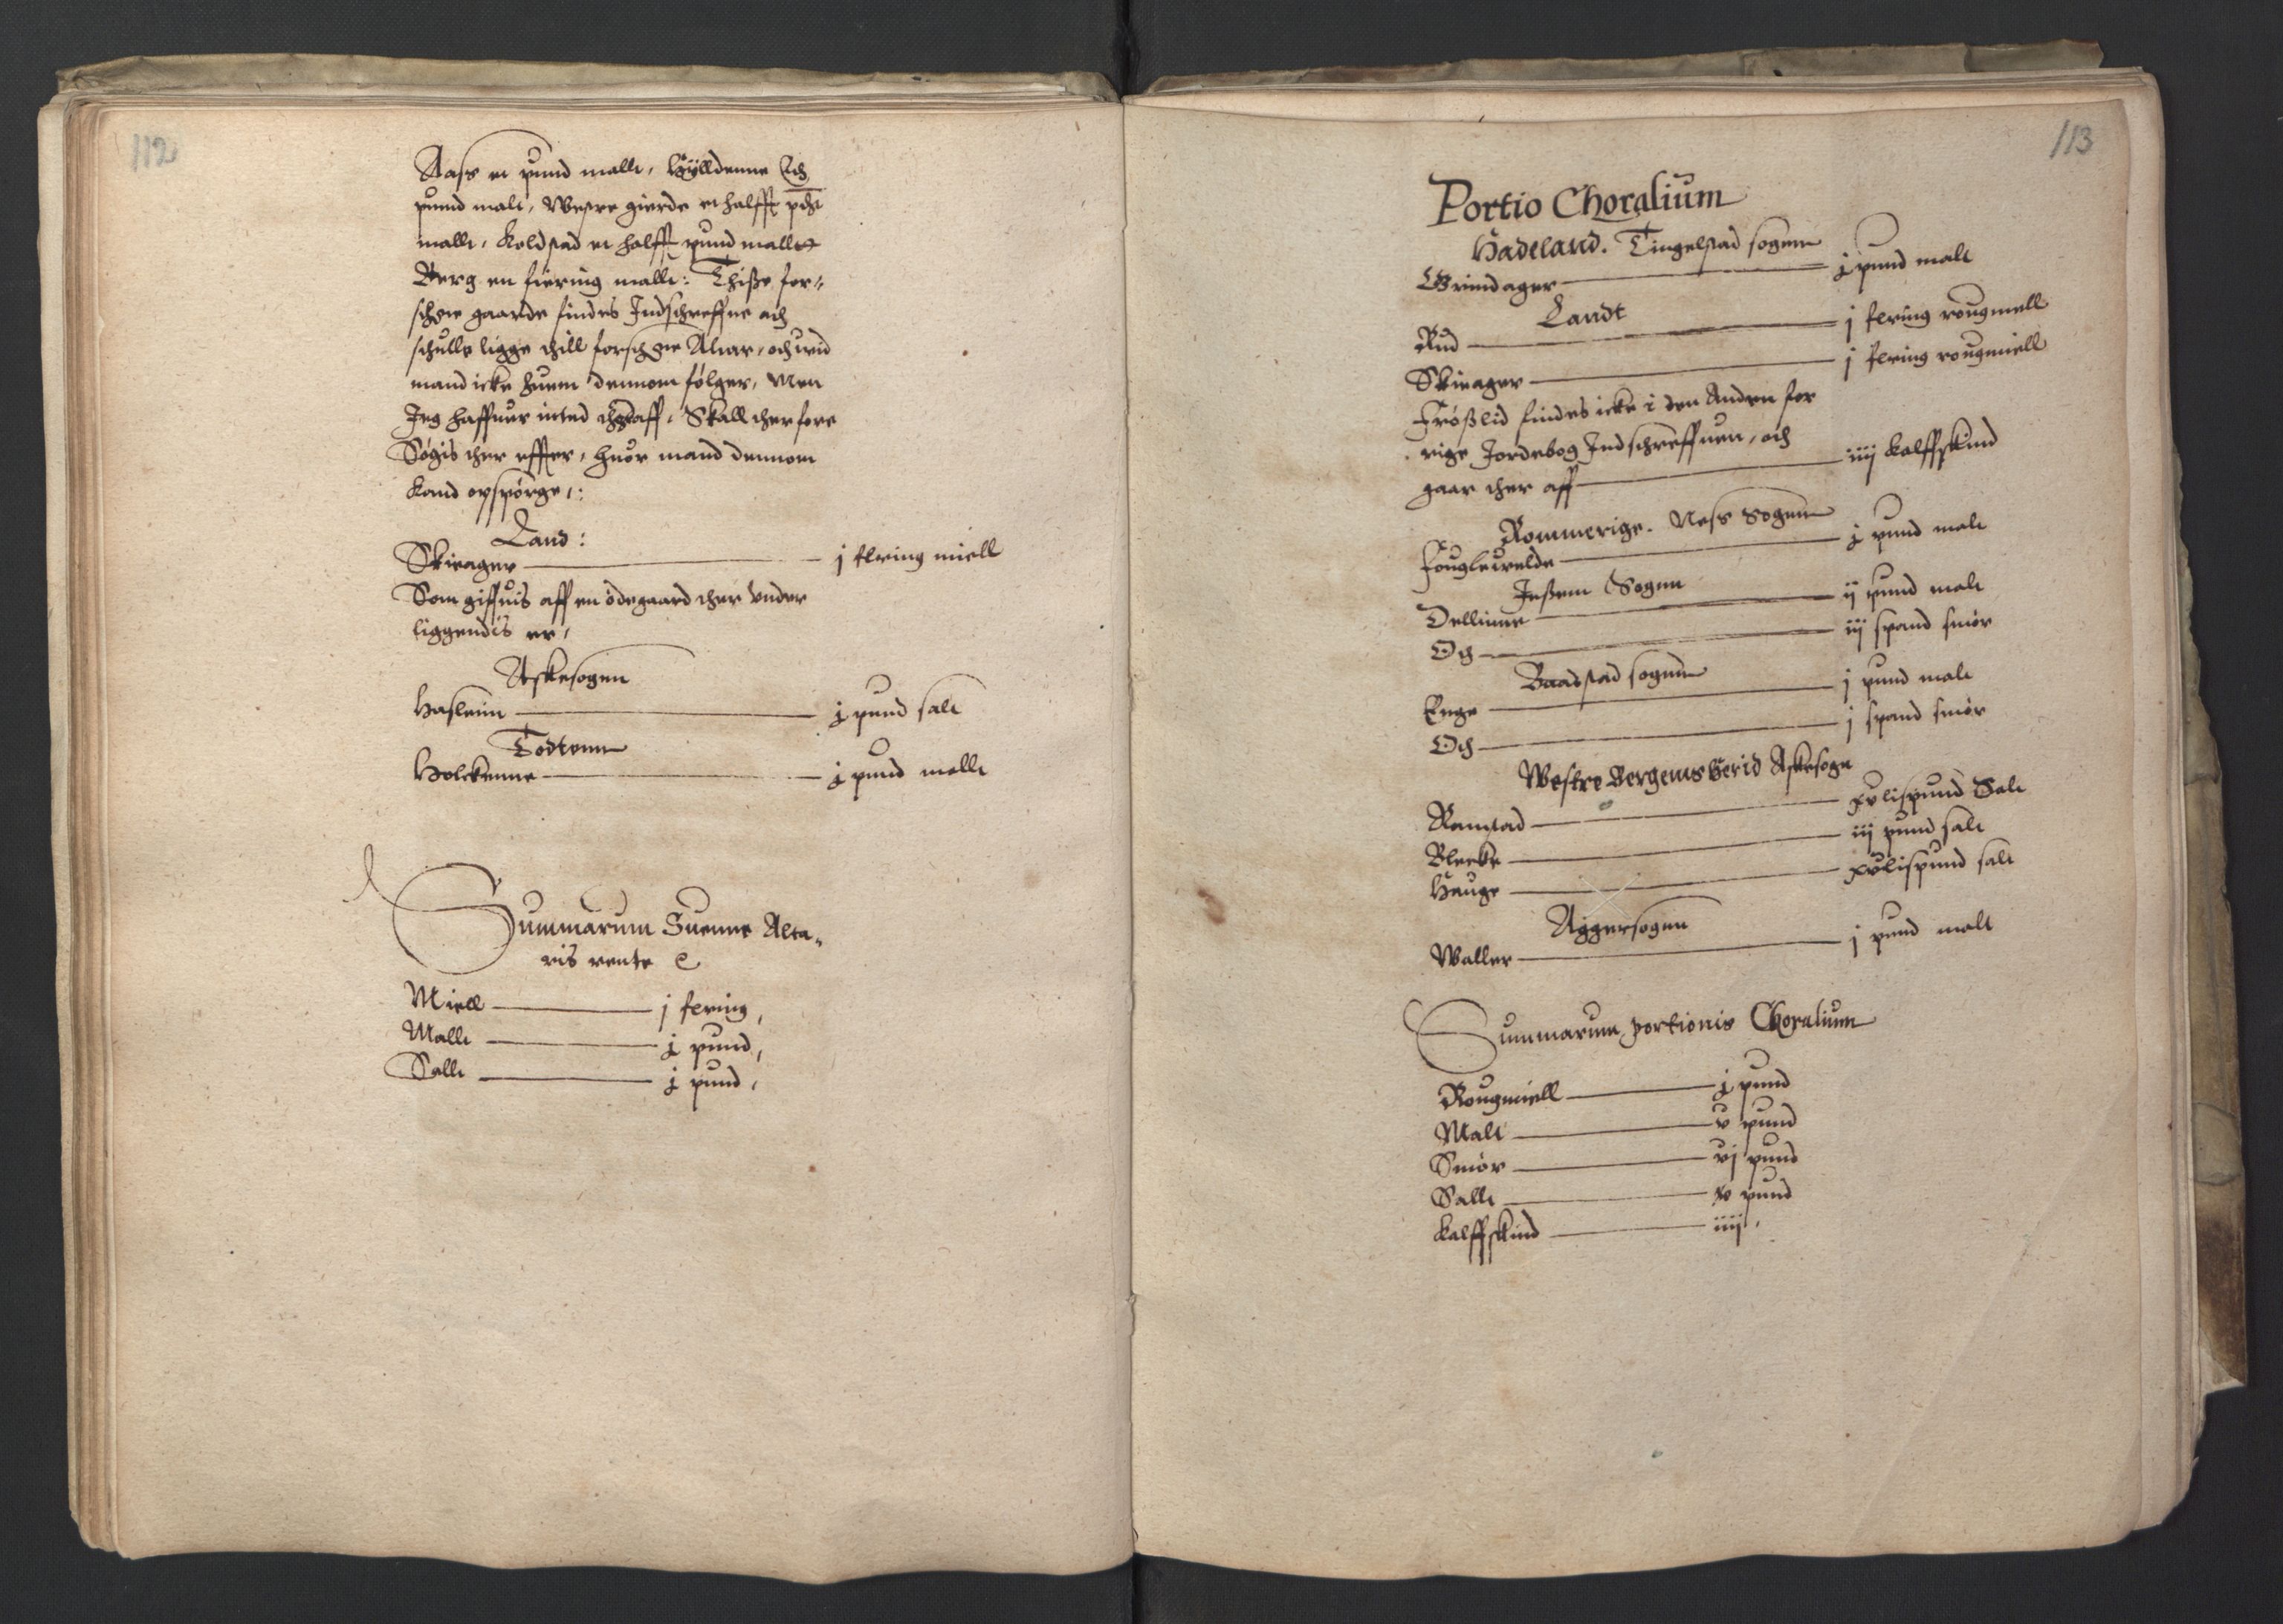 112
Aass et pund mallt, Hÿlldenne Ith
pund malt, Westre gierde et halfft pdt
mallt, Koldstad et halfft pund malltt
Berg en fiering mallt: Thisse for-
schrne gaarde findes Indschreffne och
schulle ligge thill forschrne Altar, och ueid
mand icke huem dennom følger, Men
Jeg haffuer inted theraff, Skall ther fore
Søgis ther effter, huor mand dennom
kand opspørge,:
Land:
Skiager j fering miell
Som giffuis aff en ødegaard ther vnder
liggendis er,
Askesogen
Hasleim j pund salt
Todtenn
Holckenne j pund mallt
Summarum Suenne Alta-
ris rente
Miell j fering,
Mallt j pund,
Sallt j pund,
113
Portio Choralium
Hadeland. Tingelstad sogenn
Grindager j pund malt
Landt
Rud j fering rougmell
Skiager j fering rougmiell
Frøsslid findes icke i den Anden for
rige Jordebog Indschreffuen, och
gaar ther aff iiij kalffskind
Rommerige. Ness Sogenn
Fougleuelde j pund malt
Jessem Sogen
Dellinne ij pund malt
Och iij spand smør
Baadstad sogenn
Enge j pund malt
Och j spand smør
Westre Bergems Herid Askesogn
Ramstad xv lispund Salt
Blecke iij pund salt
Hauge xv lispund salt
Aggersogen
Waller j pund malt
Summarum portionis Choralium
Rougmiell j pund
Malt v pund
Smør vj pund
Sallt v pund
kalffskind iiij,